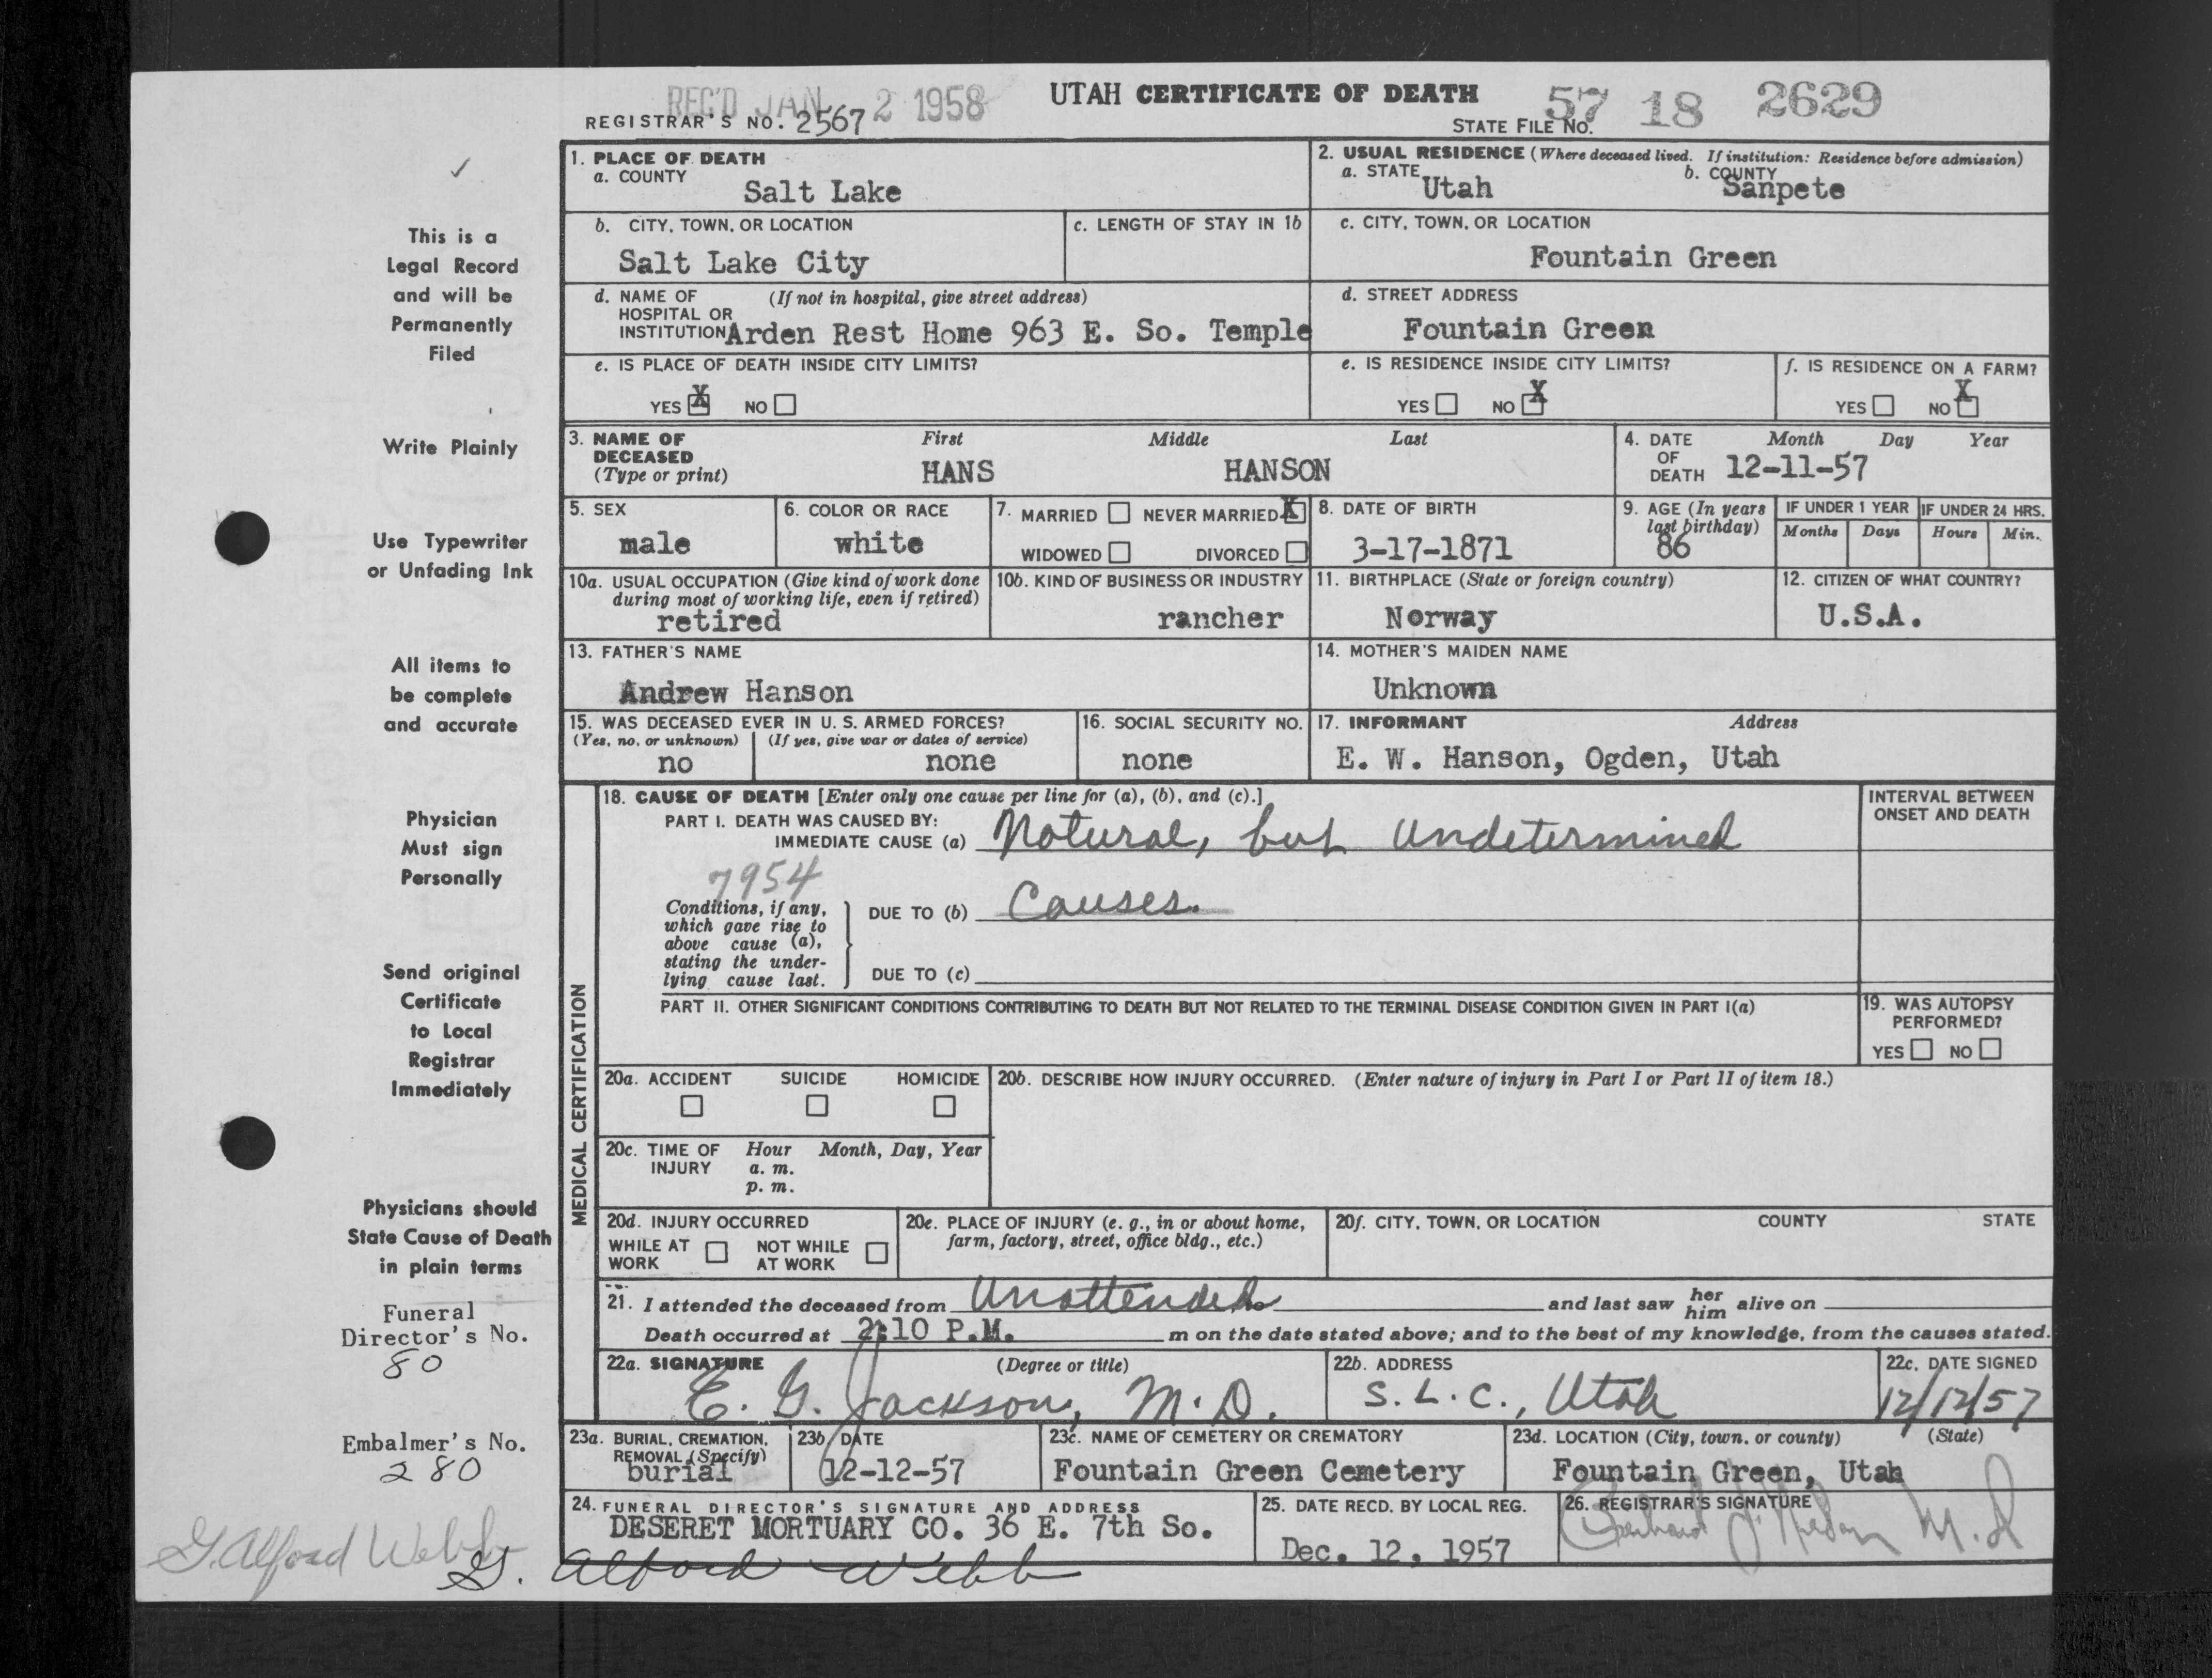 REC'D JAN 2 1958
UTAH CERTIFICATE OF DEATH
57 18 2629
REGISTRAR'S NO. 2567
STATE FILE NO.
1. PLACE OF DEATH
a. COUNTY
Salt Lake
2. USUAL RESIDENCE (Where deceased lived. If institution: Residence before admission)
a. STATE Utah b. COUNTY Sanpete
b. CITY, TOWN, OR LOCATION
Salt Lake City
c. LENGTH OF STAY IN 1b
c. CITY, TOWN, OR LOCATION
Fountain Green
d. NAME OF (If not in hospital, give street address)
HOSPITAL OR
INSTITUTION Arden Rest Home 963 E. So. Temple
d. STREET ADDRESS
Fountain Green
e. IS PLACE OF DEATH INSIDE CITY LIMITS?
YES X NO
e. IS RESIDENCE INSIDE CITY LIMITS?
YES NO X
f. IS RESIDENCE ON A FARM?
YES NO X
3. NAME OF DECEASED (Type or print)
First Middle Last
HANS HANSON
4. DATE OF DEATH Month Day Year
12-11-57
5. SEX
male
6. COLOR OR RACE
white
7. MARRIED NEVER MARRIED X
WIDOWED DIVORCED
8. DATE OF BIRTH
3-17-1871
9. AGE (In years last birthday)
86
IF UNDER 1 YEAR
Months Days
IF UNDER 24 HRS.
Hours Min.
10a. USUAL OCCUPATION (Give kind of work done
during most of working life, even if retired)
retired
10b. KIND OF BUSINESS OR INDUSTRY
rancher
11. BIRTHPLACE (State or foreign country)
Norway
12. CITIZEN OF WHAT COUNTRY?
U.S.A.
13. FATHER'S NAME
Andrew Hanson
14. MOTHER'S MAIDEN NAME
Unknown
15. WAS DECEASED EVER IN U. S. ARMED FORCES?
(Yes, no, or unknown) (If yes, give war or dates of service)
no none
16. SOCIAL SECURITY NO.
none
17. INFORMANT Address
E. W. Hanson, Ogden, Utah
MEDICAL CERTIFICATION
18. CAUSE OF DEATH [Enter only one cause per line for (a), (b), and (c).]
PART I. DEATH WAS CAUSED BY:
IMMEDIATE CAUSE (a) Natural, but undetermined
7954
Conditions, if any,
which gave rise to
above cause (a),
stating the under-
lying cause last.
DUE TO (b) Causes.
DUE TO (c)
INTERVAL BETWEEN
ONSET AND DEATH
PART II. OTHER SIGNIFICANT CONDITIONS CONTRIBUTING TO DEATH BUT NOT RELATED TO THE TERMINAL DISEASE CONDITION GIVEN IN PART I(a)
19. WAS AUTOPSY
PERFORMED?
YES NO
20a. ACCIDENT SUICIDE HOMICIDE
20b. DESCRIBE HOW INJURY OCCURRED. (Enter nature of injury in Part I or Part II of item 18.)
20c. TIME OF INJURY Hour Month, Day, Year
a. m.
p. m.
20d. INJURY OCCURRED
WHILE AT WORK NOT WHILE AT WORK
20e. PLACE OF INJURY (e. g., in or about home,
farm, factory, street, office bldg., etc.)
20f. CITY, TOWN, OR LOCATION COUNTY STATE
21. I attended the deceased from Unattended and last saw her him alive on
Death occurred at 2:10 P.M. m on the date stated above; and to the best of my knowledge, from the causes stated.
22a. SIGNATURE (Degree or title)
E. G. Jackson, M.D.
22b. ADDRESS
S.L.C., Utah
22c. DATE SIGNED
12/12/57
23a. BURIAL, CREMATION,
REMOVAL (Specify)
burial
23b. DATE
12-12-57
23c. NAME OF CEMETERY OR CREMATORY
Fountain Green Cemetery
23d. LOCATION (City, town, or county) (State)
Fountain Green, Utah
24. FUNERAL DIRECTOR'S SIGNATURE AND ADDRESS
DESERET MORTUARY CO. 36 E. 7th So.
G. Alford Webb
25. DATE RECD. BY LOCAL REG.
Dec. 12, 1957
26. REGISTRAR'S SIGNATURE
M.D
This is a
Legal Record
and will be
Permanently
Filed
Write Plainly
Use Typewriter
or Unfading Ink
All items to
be complete
and accurate
Physician
Must sign
Personally
Send original
Certificate
to Local
Registrar
Immediately
Physicians should
State Cause of Death
in plain terms
Funeral
Director's No.
80
Embalmer's No.
280
G. Alford Webb